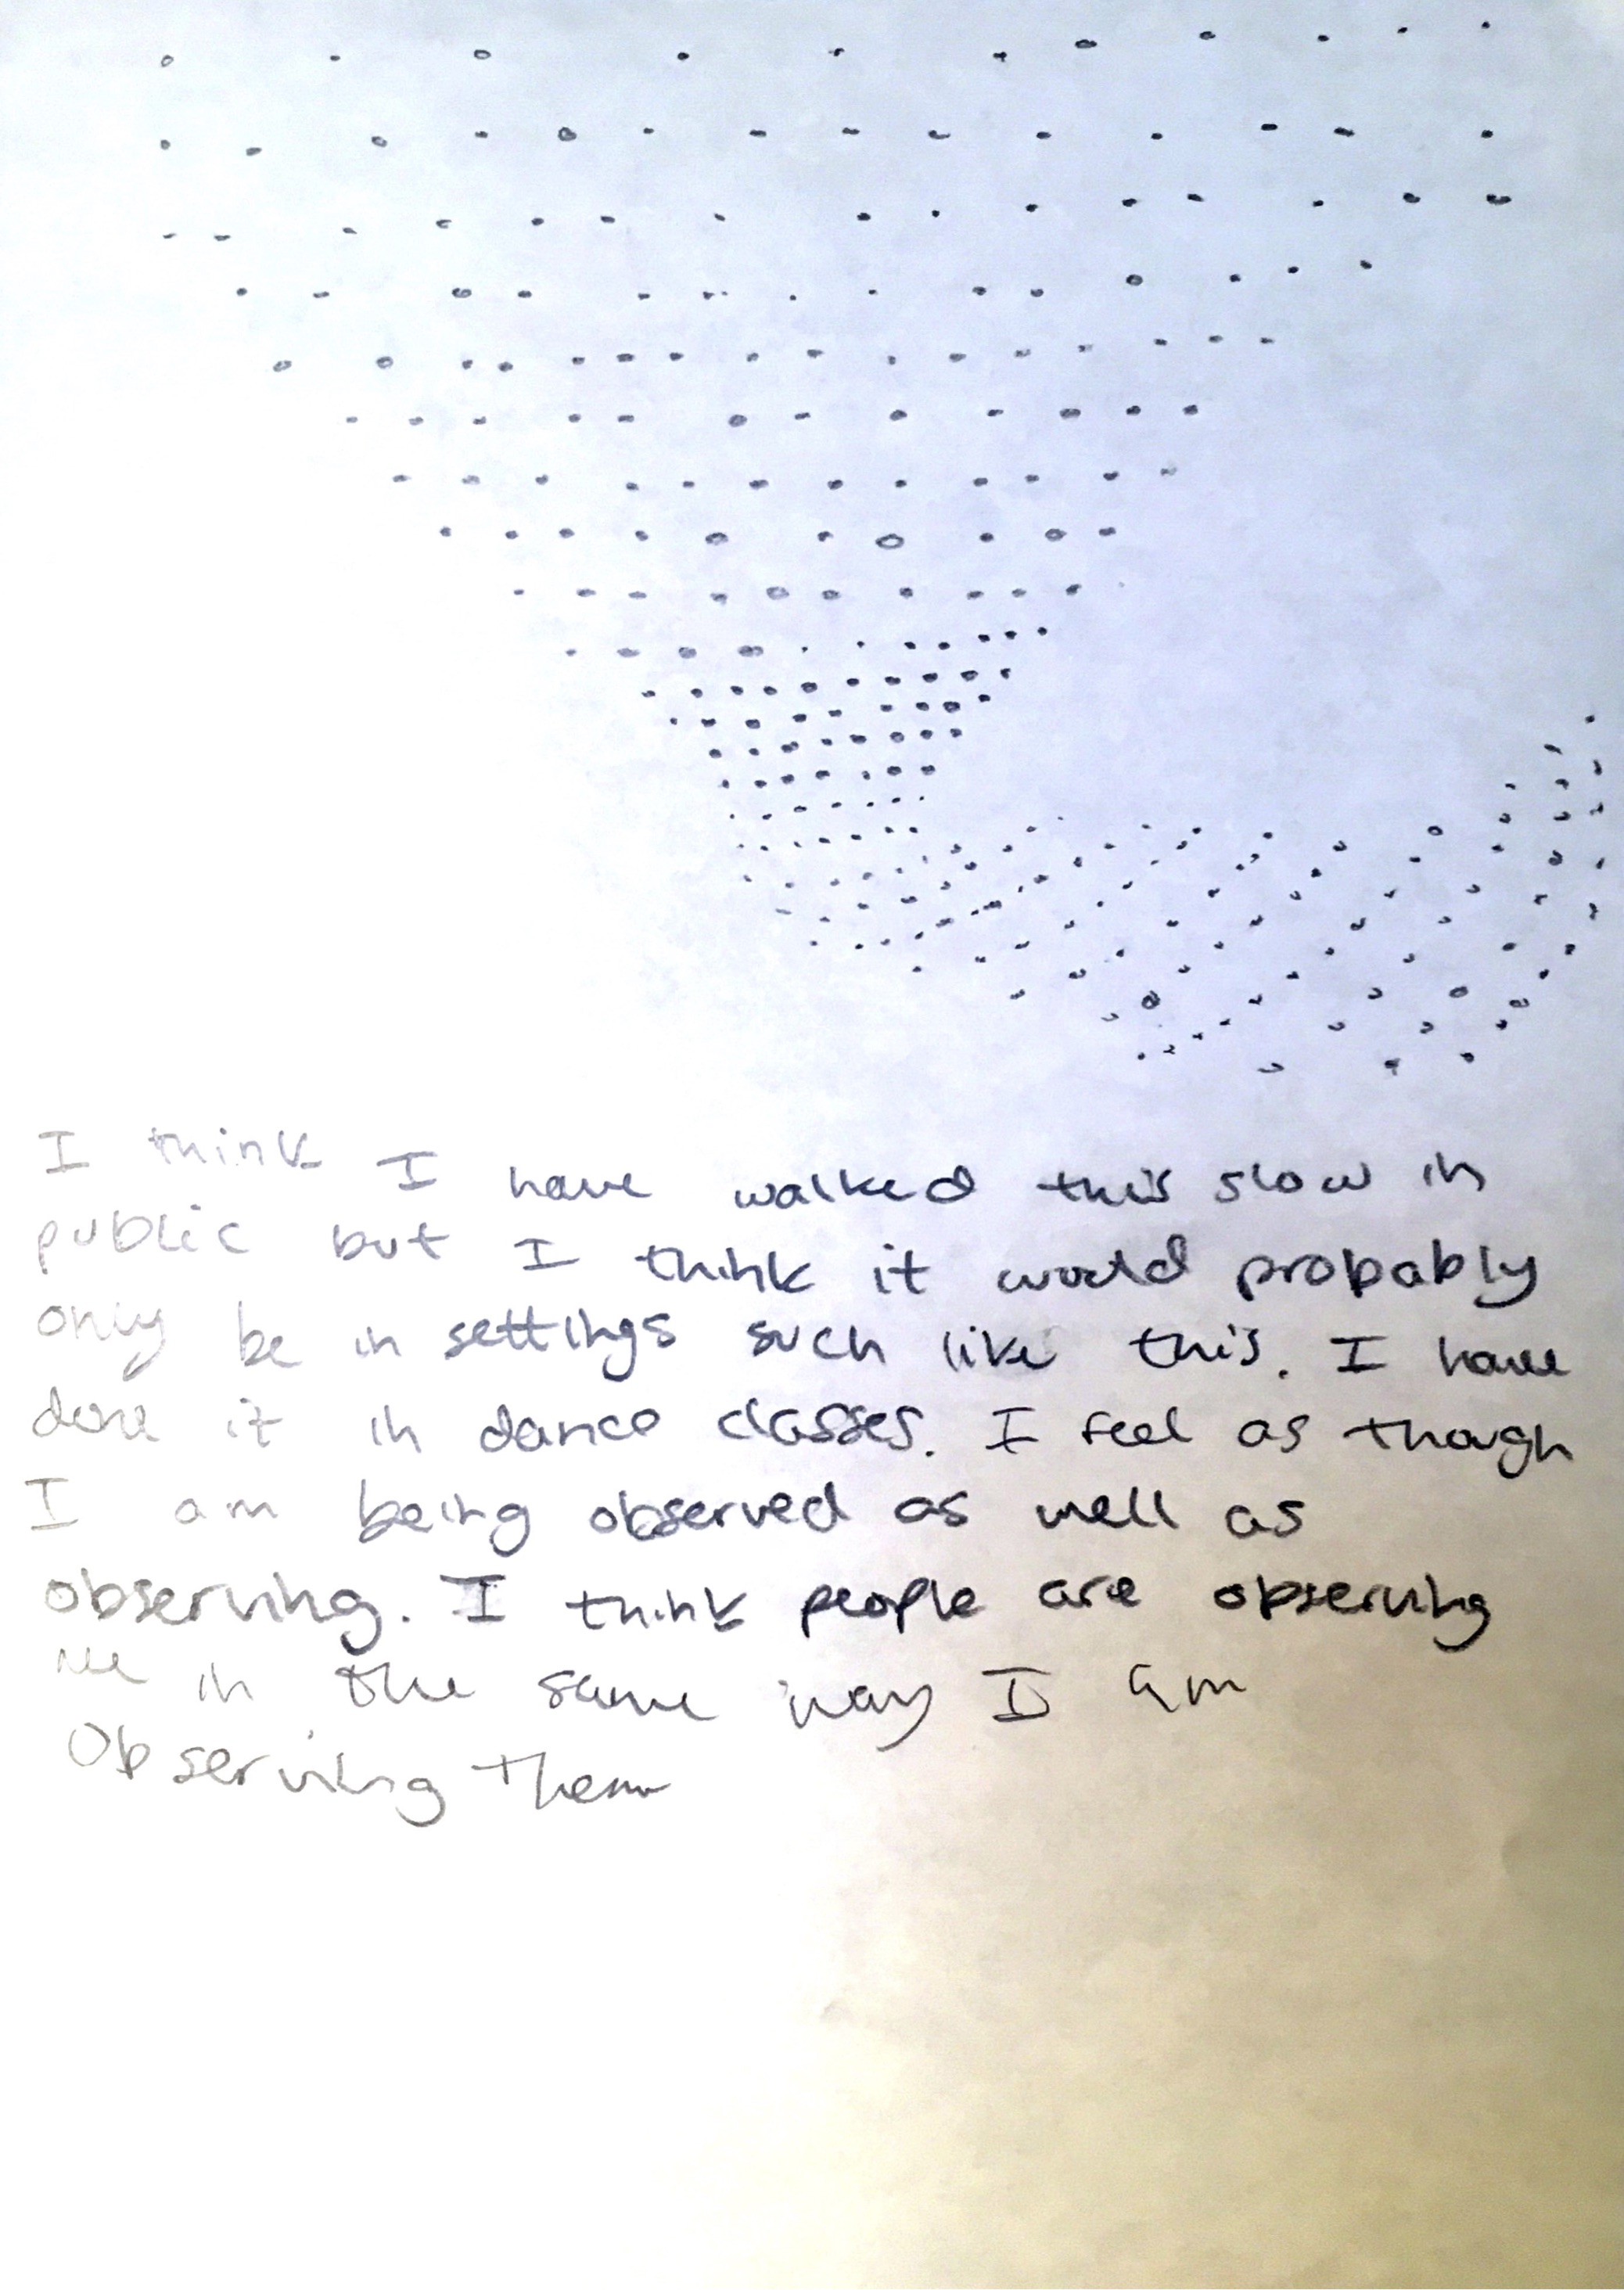 I think I have walked this slow in
public but I think it would probably
only be in settings such like this. I have
done it in dance classes. I feel as though
I am being observed as well as
observing. I think people are observing
me in the same way I am
observing them